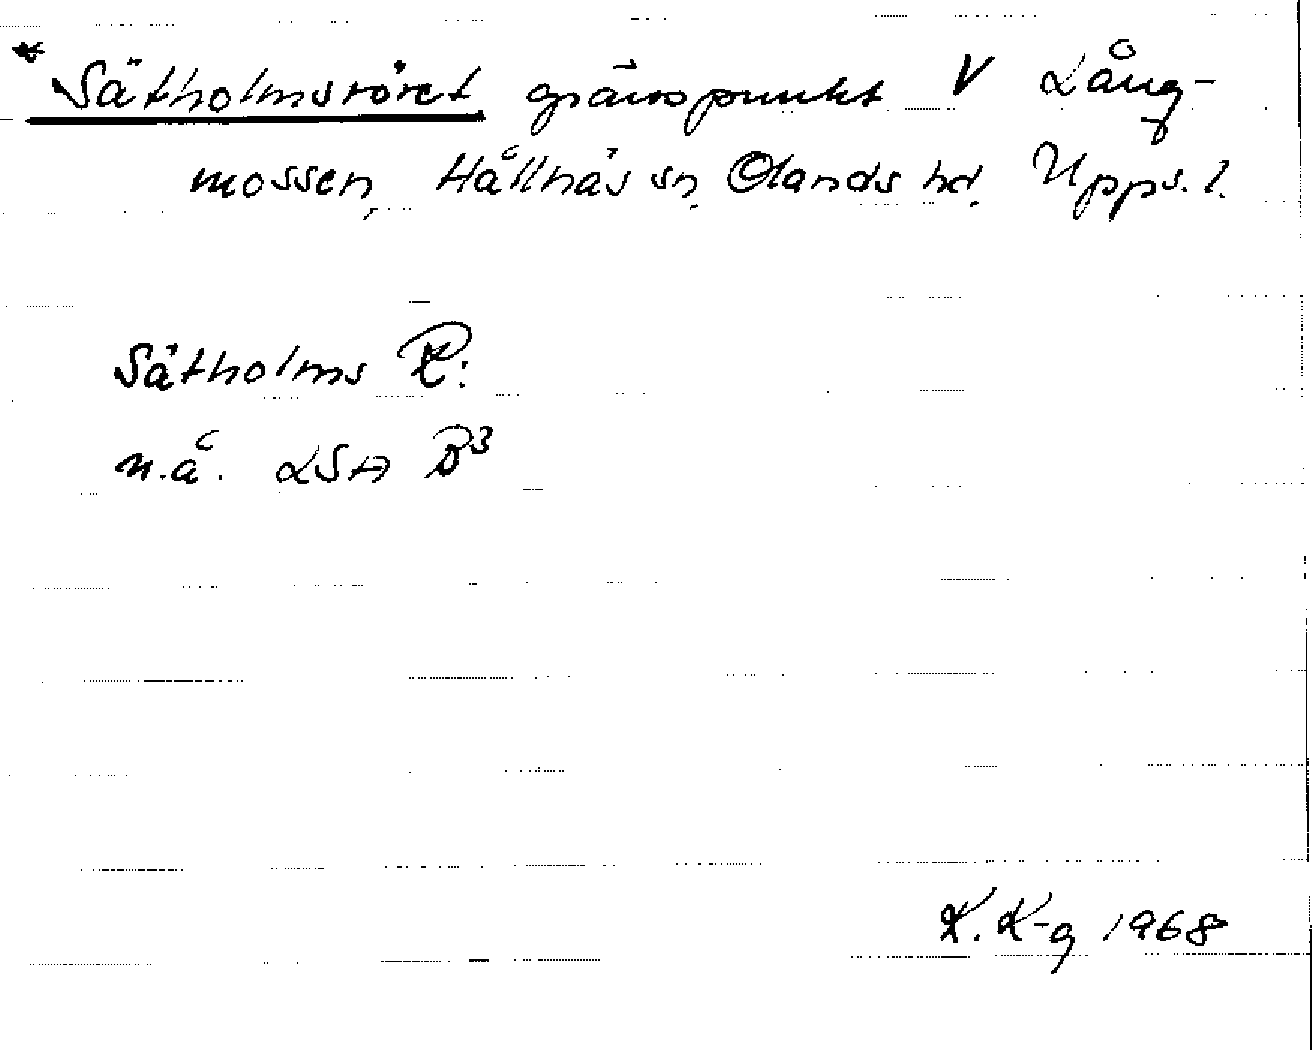 *Sätholmsröret, gränspunkt V Lång-
mossen, Hållnäs sn, Olands hd, Upps. l.
Sätholms R:
n.å. LSA B3
K. K-g 1968